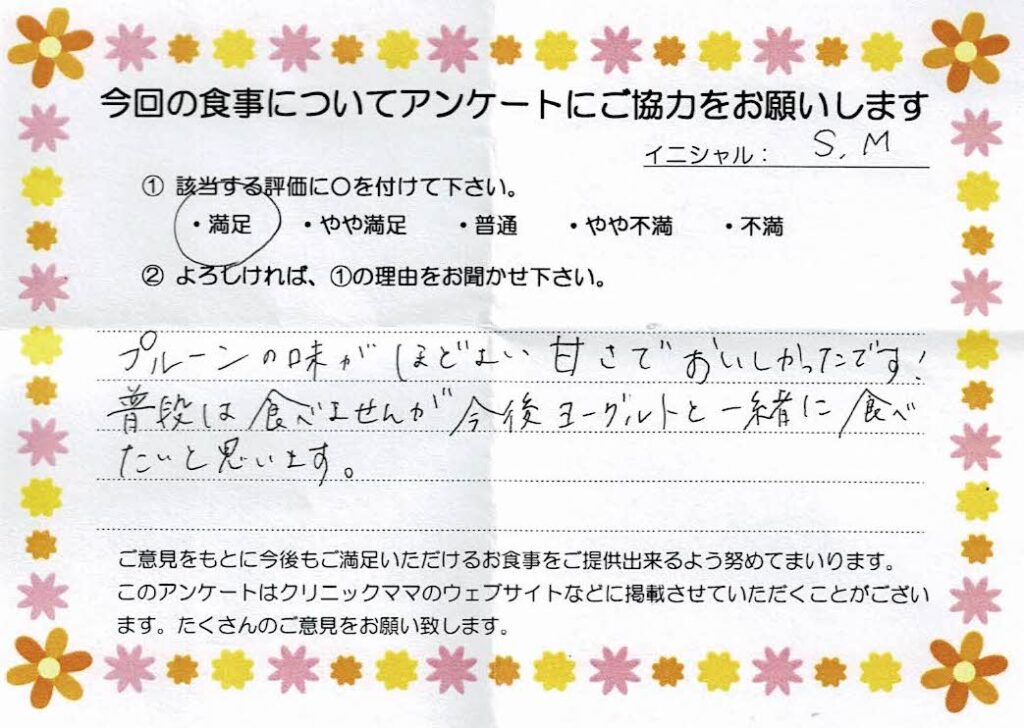 今回の食事についてアンケートにご協力をお願いします
イニシャル： S, M
① 該当する評価に〇を付けて下さい。
・満足 ・やや満足 ・普通 ・やや不満 ・不満
② よろしければ、①の理由をお聞かせ下さい。
プルーンの味がほどよい甘さでおいしかったです！
普段は食べませんが今後ヨーグルトと一緒に食べ
たいと思います。
ご意見をもとに今後もご満足いただけるお食事をご提供出来るよう努めてまいります。
このアンケートはクリニックママのウェブサイトなどに掲載させていただくことがござい
ます。たくさんのご意見をお願い致します。